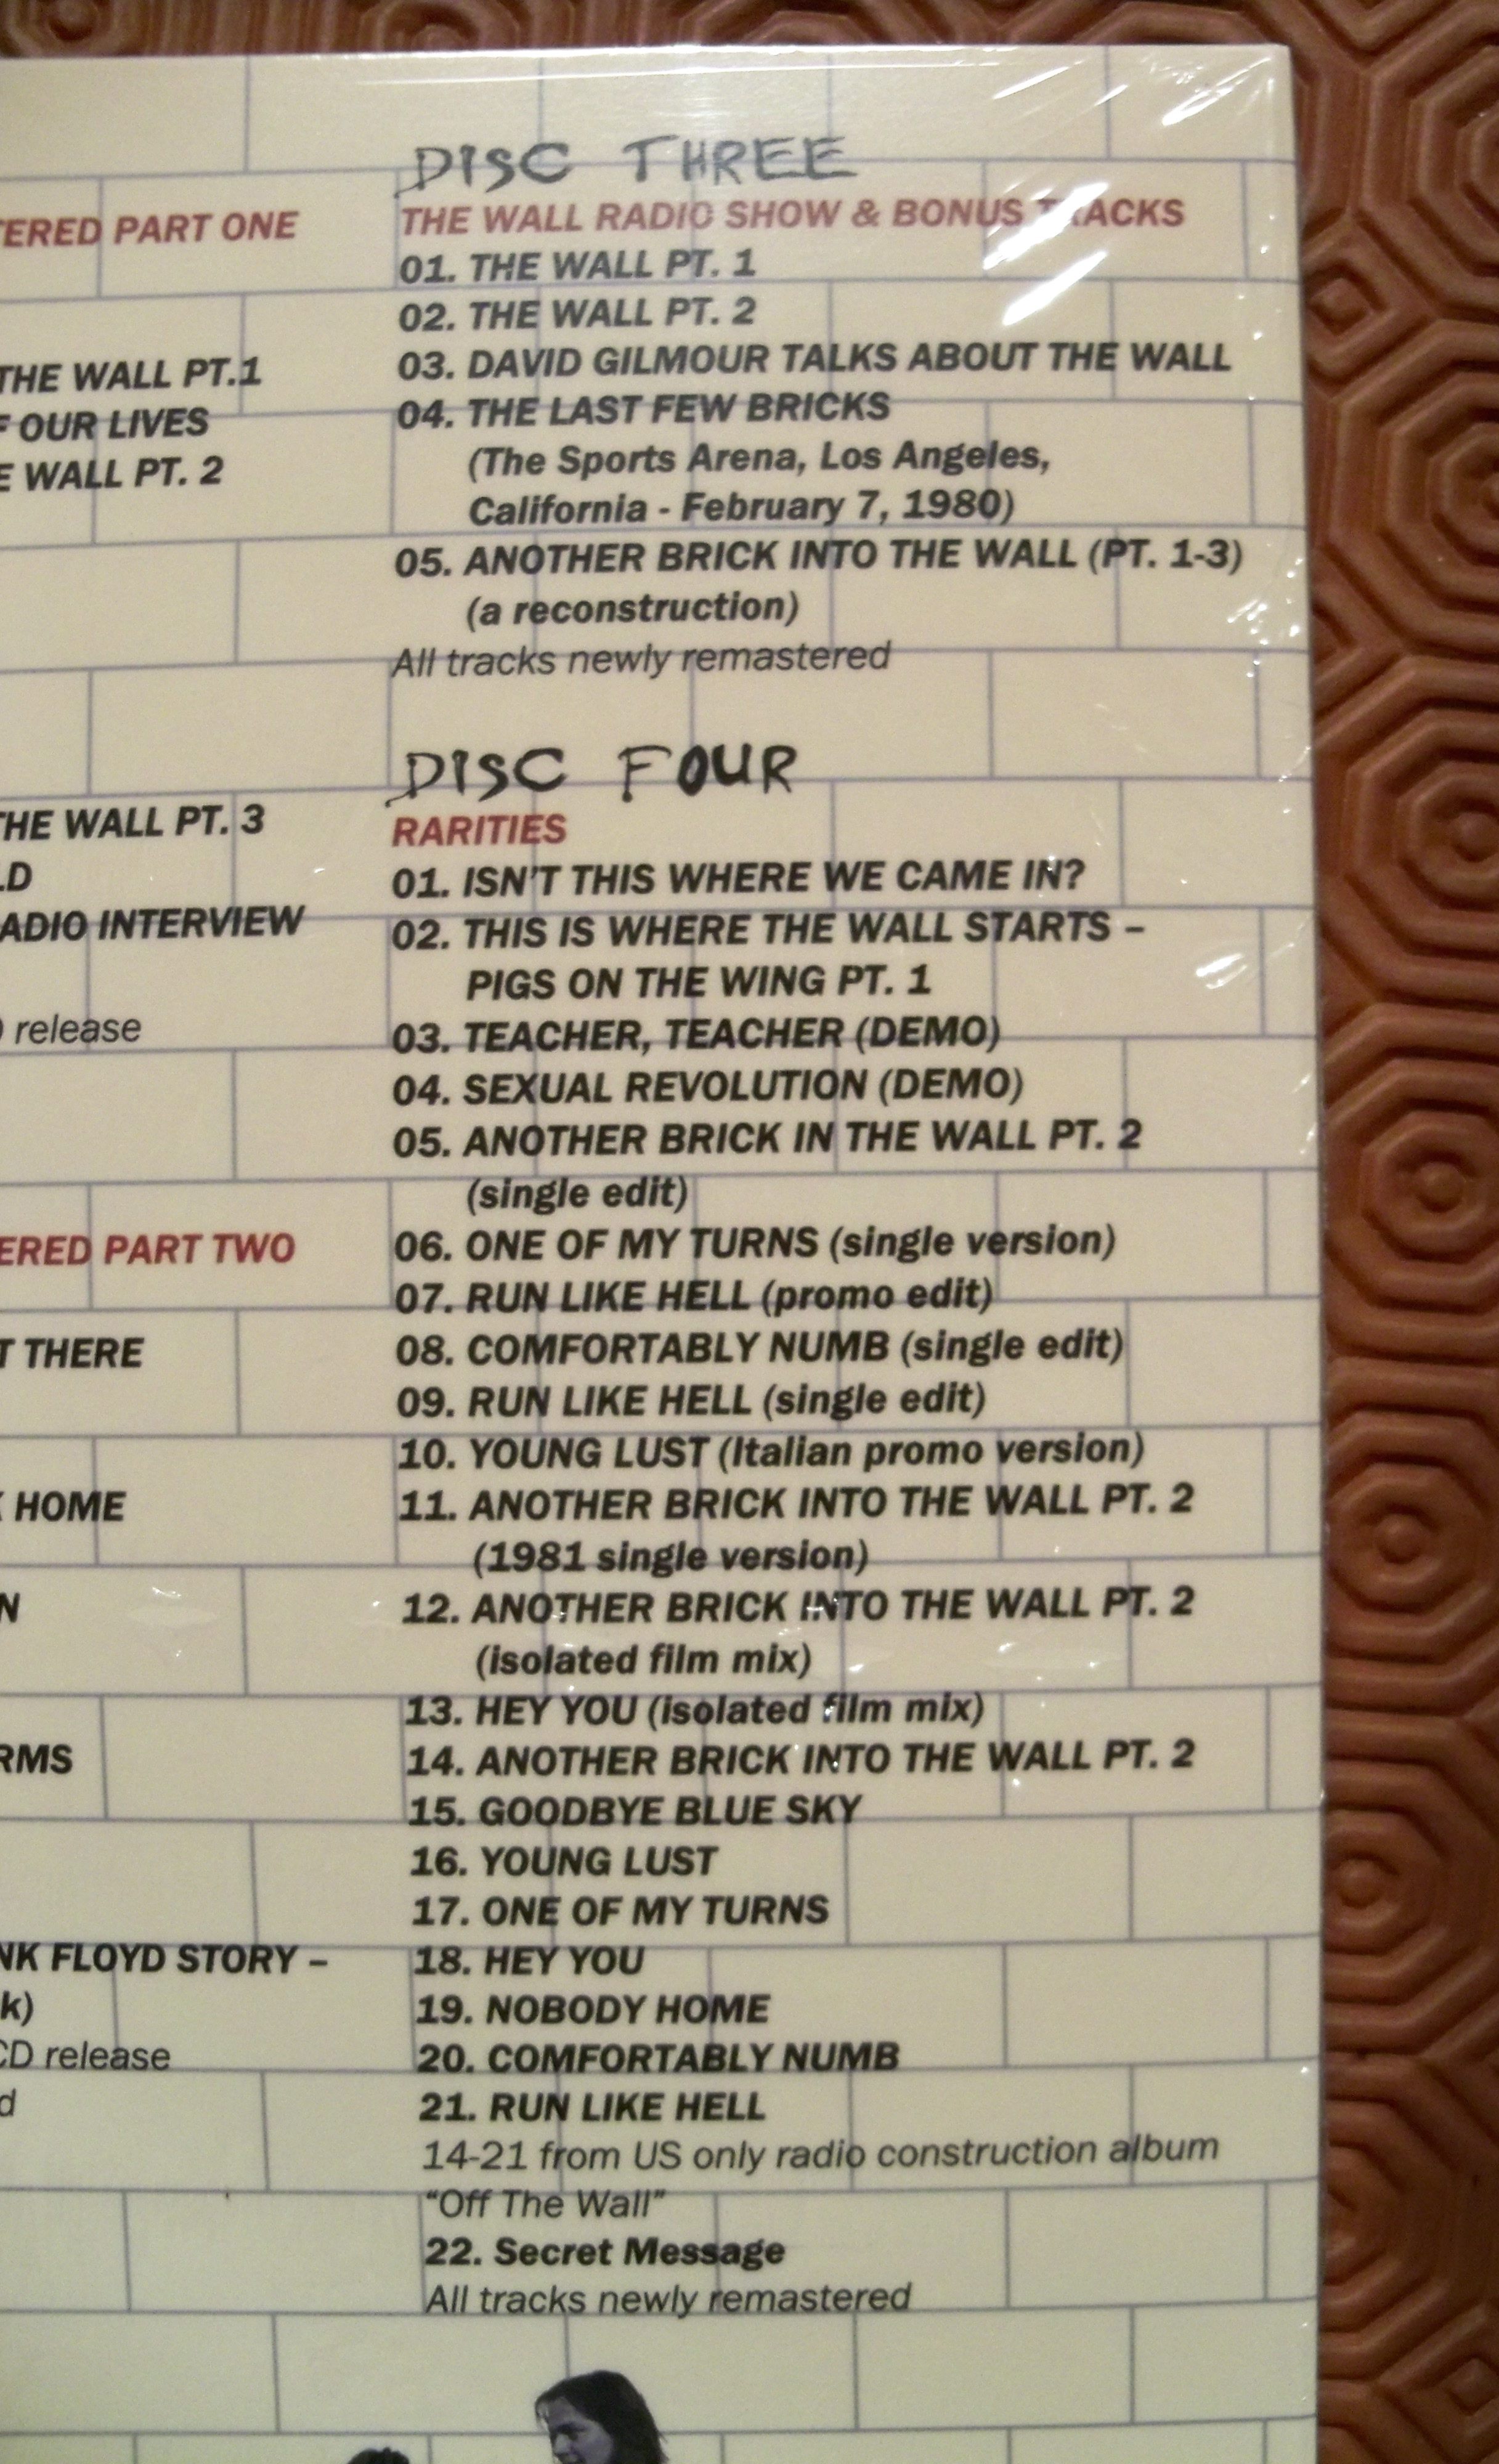 TERED PART ONE
THE WALL PT.1
F OUR LIVES
E WALL PT. 2
THE WALL PT. 3
LD
ADIO INTERVIEW
D release
ERED PART TWO
T THERE
K HOME
N
RMS
NK FLOYD STORY –
k)
CD release
d
DISC THREE
THE WALL RADIO SHOW & BONUS TRACKS
01. THE WALL PT. 1
02. THE WALL PT. 2
03. DAVID GILMOUR TALKS ABOUT THE WALL
04. THE LAST FEW BRICKS
(The Sports Arena, Los Angeles,
California - February 7, 1980)
05. ANOTHER BRICK INTO THE WALL (PT. 1-3)
(a reconstruction)
All tracks newly remastered
DISC FOUR
RARITIES
01. ISN'T THIS WHERE WE CAME IN?
02. THIS IS WHERE THE WALL STARTS –
PIGS ON THE WING PT. 1
03. TEACHER, TEACHER (DEMO)
04. SEXUAL REVOLUTION (DEMO)
05. ANOTHER BRICK IN THE WALL PT. 2
(single edit)
06. ONE OF MY TURNS (single version)
07. RUN LIKE HELL (promo edit)
08. COMFORTABLY NUMB (single edit)
09. RUN LIKE HELL (single edit)
10. YOUNG LUST (Italian promo version)
11. ANOTHER BRICK INTO THE WALL PT. 2
(1981 single version)
12. ANOTHER BRICK INTO THE WALL PT. 2
(isolated film mix)
13. HEY YOU (isolated film mix)
14. ANOTHER BRICK INTO THE WALL PT. 2
15. GOODBYE BLUE SKY
16. YOUNG LUST
17. ONE OF MY TURNS
18. HEY YOU
19. NOBODY HOME
20. COMFORTABLY NUMB
21. RUN LIKE HELL
14-21 from US only radio construction album
“Off The Wall”
22. Secret Message
All tracks newly remastered